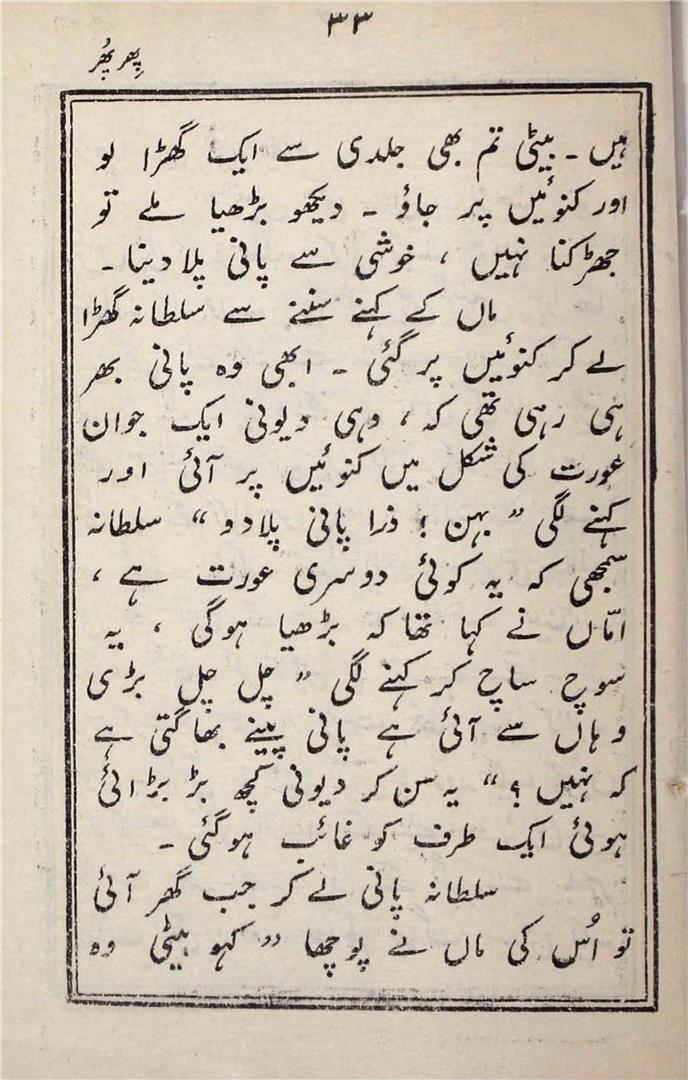 ۳۳
پِھر پھُر
ہیں ۔ بیٹی تم بھی جلدی سے ایک گھڑا لو
اور کنوئیں پر جاؤ ۔ دیکھو بڑھیا ملے تو
جھڑکنا نہیں ، خوشی سے پانی پلا دینا ۔
ماں کے کہنے سننے سے سلطانہ گھڑا
لے کر کنوئیں پر گئی ۔ ابھی وہ پانی بھر
ہی رہی تھی کہ ، وہی دیونی ایک جوان
عورت کی شکل میں کنوئیں پر آئی اور
کہنے لگی ” بہن ! ذرا پانی پلا دو “ سلطانہ
سمجھی کہ یہ کوئی دوسری عورت ہے ،
امّاں نے کہا تھا کہ بڑھیا ہوگی ، یہ
سوچ ساچ کر کہنے لگی ” چل چل بڑی
وہاں سے آئی ہے پانی پینے بھاگتی ہے
کہ نہیں ؟ “ یہ سن کر دیونی کچھ بڑ بڑائی
ہوئی ایک طرف کو غائب ہوگئی ۔
سلطانہ پانی لے کر جب گھر آئی
تو اُس کی ماں نے پوچھا ” کہو بیٹی وہ